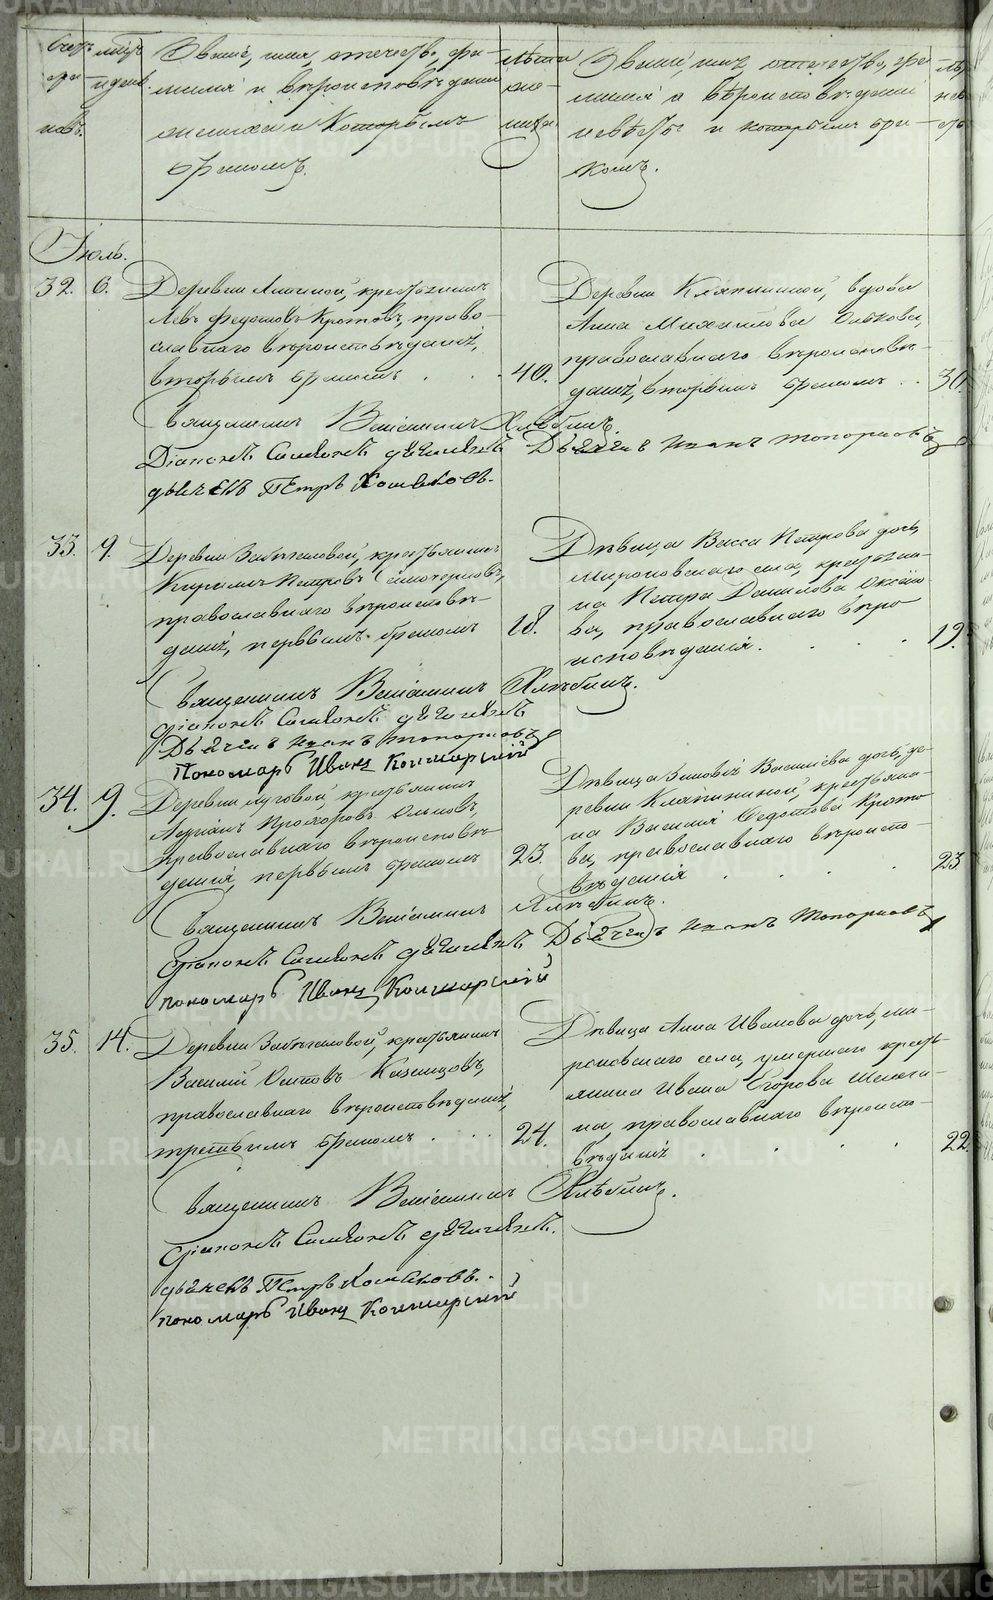 Счетъ
бра-
ковъ.
мѣсяцъ
и день.
Званіе, имя, отчество, фа-
милія и вѣроисповѣданіе
жениха и Которымъ
бракомъ.
Лѣта
же-
ниха.
Званіе, имя, отечество, фа-
милія и вѣроисповѣданіе
невѣсты и которымъ бра-
комъ.
Лѣта
невѣ-
сты
Іюль.
32. 6.
Деревни крестьянинъ
Левъ Федотовъ Кротовъ, право-
славнаго вѣроисповѣданія,
вторымъ бракомъ . . 40.
Деревни Кляпининой, вдова
Анна Михаилова
православнаго вѣроисповѣ-
данія, вторымъ бракомъ . . 30.
Священникъ Веніаминъ Хлѣбинъ.
Діаконъ Симеонъ
Дьячекъ Иванъ Топорковъ
дьячекъ Петръ Хомяковъ.
33. 9.
Деревни крестьянинъ
Кирилъ Петровъ
православнаго вѣроисповѣ-
данія, первымъ бракомъ 18.
Дѣвица Васса Петрова дочь,
Мироновскаго села, крестьяни-
на Петра Данилова
ва, православнаго вѣро
исповѣданія. . . . 19.
Священникъ Веніаминъ Хлѣбинъ.
Діаконъ Симеонъ
Дьячекъ Иванъ Топорковъ
Пономарь Иванъ
34. 9.
Деревни Луговой, крестьянинъ
Адріанъ Прохоровъ
православнаго вѣроисповѣ-
данія, первымъ бракомъ 23.
Дѣвица Зиновія Васильева дочь, де-
ревни Кляпининой, крестьяни-
на Василія Федотова Крото-
ва, православнаго вѣроиспо-
вѣданія . . . . 23.
Священникъ Веніаминъ Хлѣбинъ.
Діаконъ Симеонъ
Дьячекъ Иванъ Топорковъ
пономарь Иванъ
35. 14.
Деревни крестьянинъ
Василій Осиповъ Казанцовъ,
православнаго вѣроисповѣданія,
третьимъ бракомъ . . . 24.
Дѣвица Анна Иванова дочь, Ми-
роновскаго села, умершаго кресть-
янина Ивана Егорова
на, православнаго вѣроиспо-
вѣданія . . . . 22.
Священникъ Веніаминъ Хлѣбинъ.
Діаконъ Симеонъ
дьячекъ Петръ Хомяковъ.
пономарь Иванъ
METRIKI.GASO-URAL.RU